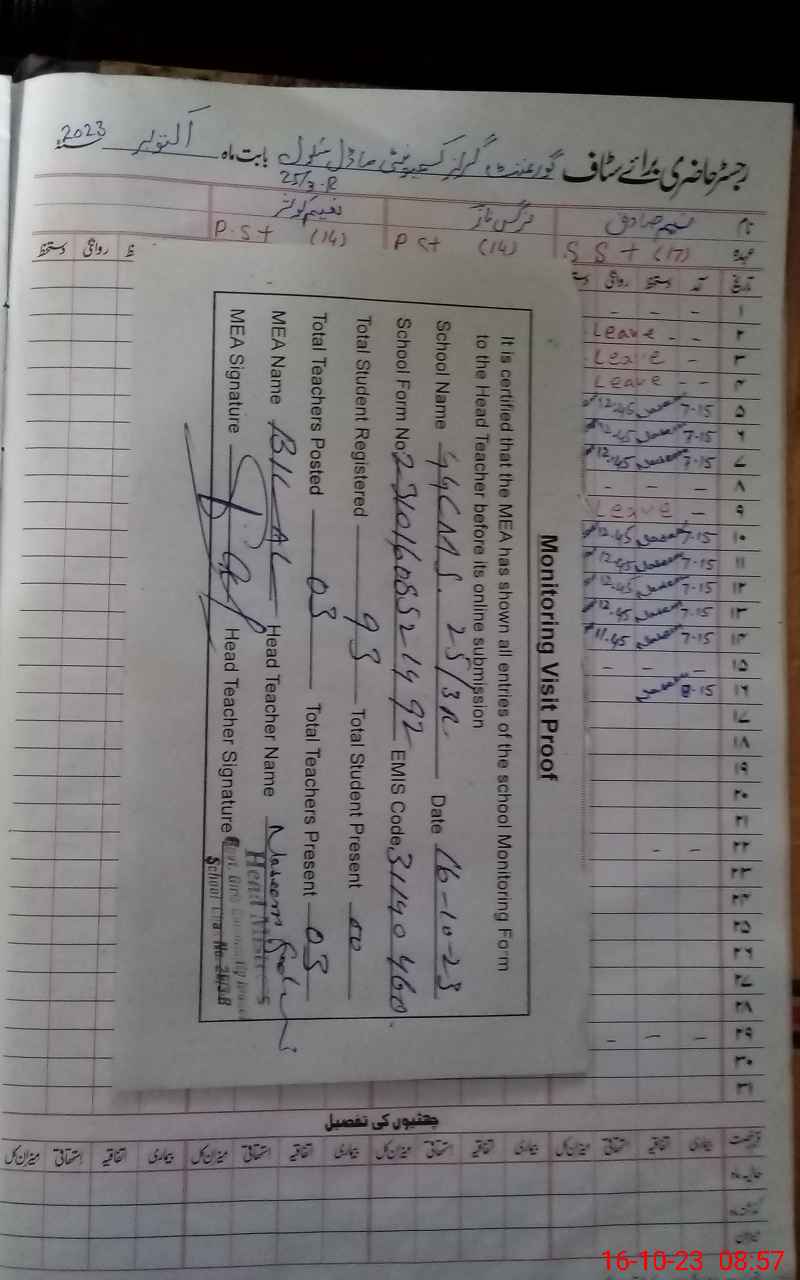 رجسٹر حاضری برائے سٹاف گورنمنٹ گرلز کمیونٹی ماڈل سکول بابت ماہ اکتوبر 2023
25/3-R
نام نسیم صادق نرگس ناز نعیم کوثر
عہدہ S S t (17) P S t (14) P.S t (14)
تاریخ آمد دستخط روانگی
روانگی دستخط
۱ - - -
۲ - - Leave
۳ - Leave
۴ - - Leave
۵ 7-15 12.45
۶ 7-15 12.45
۷ 7-15 12.45
۸ - - -
۹ - Leave
۱۰ 7-15 12.45
۱۱ 7-15 12.45
۱۲ 7-15 12.45
۱۳ 7-15 12.45
۱۴ 7-15 11.45
۱۵ - - -
۱۶ 8-15
۱۷
۱۸
۱۹
۲۰
۲۱
۲۲ - -
۲۳
۲۴
۲۵
۲۶
۲۷
۲۸
۲۹ - - -
۳۰
۳۱
Monitoring Visit Proof
It is certified that the MEA has shown all entries of the school Monitoring Form
to the Head Teacher before its online submission
School Name GGCM S. 25/3R Date 16-10-23
School Form No. EMIS Code 31140460
Total Student Registered 93 Total Student Present 00
Total Teachers Posted 03 Total Teachers Present 03
MEA Name BILAL Head Teacher Name Naseem
MEA Signature Head Teacher Signature
Head
School Cha. No. 25/3.R
چھٹیوں کی تفصیل
رخصت بیماری اتفاقیہ استحقاقی میزان کل بیماری اتفاقیہ استحقاقی میزان کل بیماری اتفاقیہ استحقاقی میزان کل بیماری اتفاقیہ استحقاقی میزان کل
حالیہ ماہ
گذشتہ ماہ
میزان
16-10-23 08:57